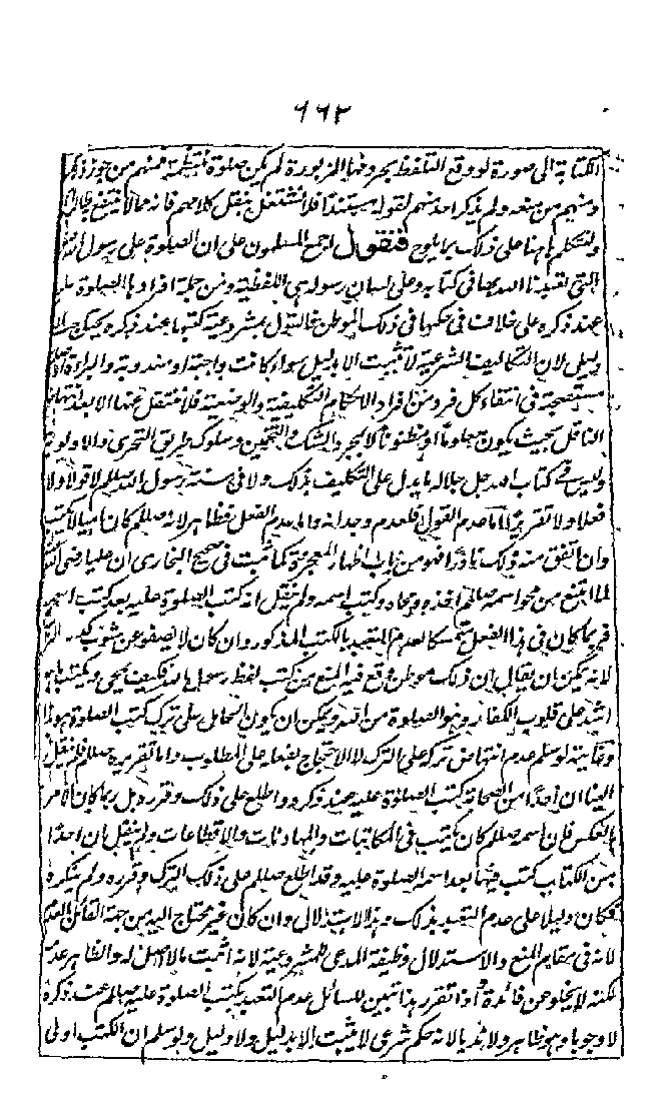 ٦٦٢
الكتابة الى صورة لو وقع التلفظ بحروفها المزبورة لم يكن صلوة فمنهم من جوز ذلك
ومنهم من منعه ولم يذكر احد منهم لقوله مستندا فلا نشتغل بنقل كلامهم فانه مما لا ينتفع به
ولنتكلم ههنا على ذلك بما يلوح فنقول اجمع المسلمون على ان الصلوة على رسول الله
التى تعبدنا الله بها فى كتابه وعلى لسان رسوله هى اللفظية ومن جملة افرادها الصلوة عليه
عند ذكره على خلاف فى حكمها فى ذلك الموطن فالقول بمشروعية كتبها عند ذكره يحتاج الى
دليل لان التكاليف الشرعية لا تثبت الا بدليل سواء كانت واجبة او مندوبة والبراءة
مستصحبة فى انتفاء كل فرد من افراد الاحكام التكليفية والوضعية فلا ننتقل عنها الا بعد انتهاض
الناقل بحيث يكون معلوما او مظنونا لا بمجرد الشك والتخمين وسلوك طريق التحرى
وليس فى كتاب الله جل جلاله ما يدل على التكليف بذلك ولا فى سنة رسول الله صلعم لا قولا ولا
فعلا ولا تقريرا اما عدم القول فلعدم وجدانه واما عدم الفعل فظاهر لانه صلعم كان اميا لا يكتب
وان اتفق منه ذلك نادرا فهو من باب اظهار المعجزة كما ثبت فى صحيح البخارى ان عليا رضى الله
لما امتنع من محو اسمه صلعم اخذه ومحاه وكتب اسمه ولم ينقل انه كتب الصلوة عليه بعد كتب اسمه
فربما كان فى هذا الفعل متمسكا لعدم التعبد بالكتب المذكور وان كان لا يصفو عن شوب
لانه يمكن ان يقال ان ذلك موطن وقع فيه المنع من كتب لفظ رسول الله فكيف يمحى ويكتب ما هو
اشد على قلوب الكفار وهو الصلوة من الله ويمكن ان يكون الحامل على ترك كتب الصلوة هو هذا
وغايته لو سلم عدم انتهاض تركه على الترك لا الاحتجاج بفعله على المطلوب واما تقريره صلعم فلم ينقل
الينا ان احدا من الصحابة كتب الصلوة عليه عند ذكره واطلع على ذلك وقرره بل ربما كان الامر
بالعكس فان اسمه صلعم كان يكتب فى المكاتبات والمهادنات والاقطاعات ولم ينقل ان احدا
من الكتاب كتب فيها بعد اسمه الصلوة عليه وقد اطلع صلعم على ذلك الترك وقرره ولم ينكره
فكان دليلا على عدم التعبد بذلك وهذا الاستدلال وان كان غير محتاج اليه من جهة القائل بالعدم
لانه فى مقام المنع والاستدلال وظيفة المدعى للمشروعية لانه اثبت ما لا اصل له والظاهر عدمه
لكنه لا يخلو عن فائدة و اذا تقرر هذا تبين للسائل عدم التعبد بكتب الصلوة عليه صلعم عند ذكره
لا وجوبا وهو ظاهر ولا ندبا لانه حكم شرعى لا يثبت الا بدليل ولا دليل ولو سلم ان الكتب اولى